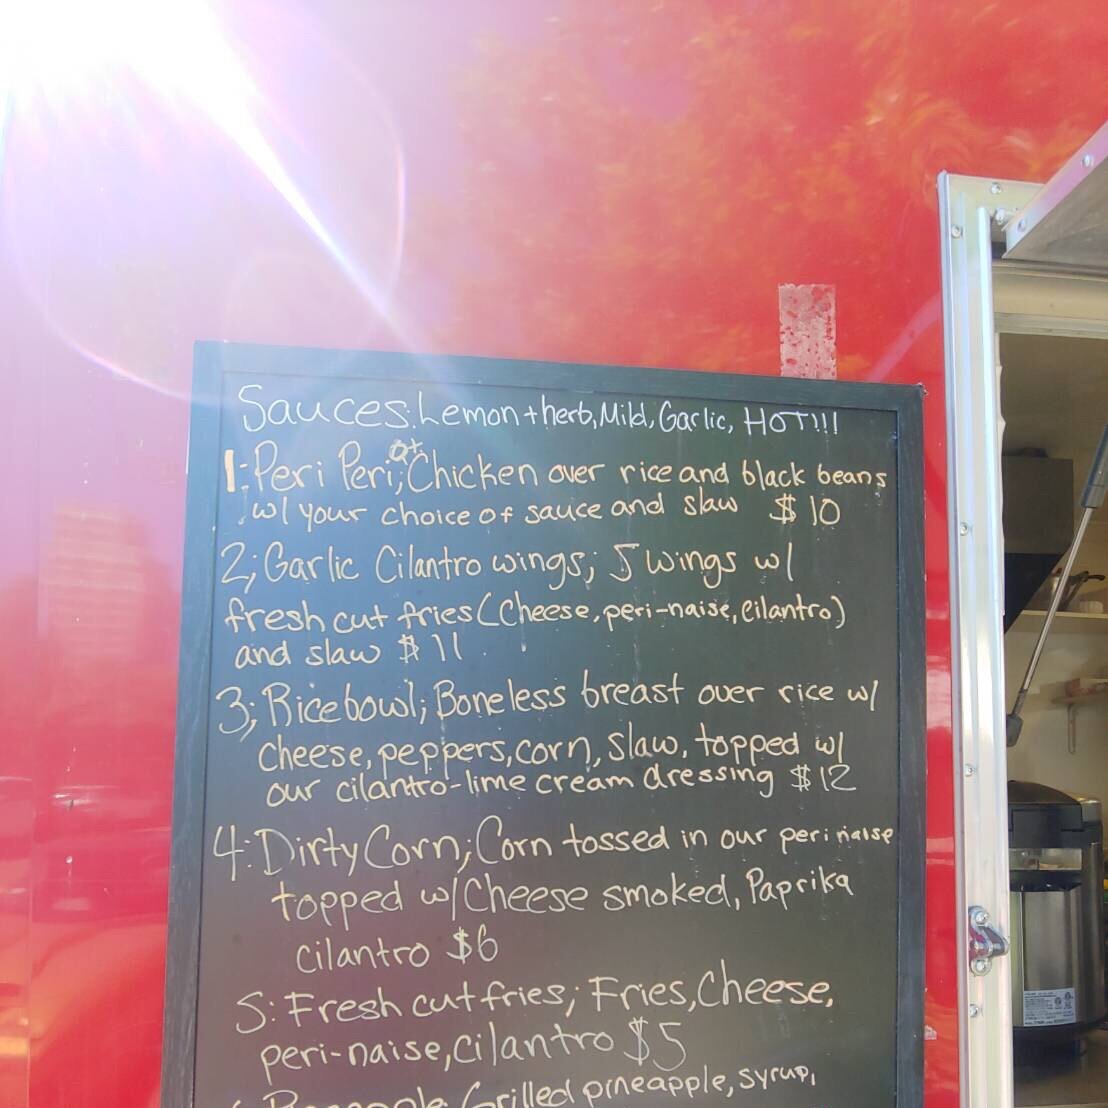 Sauces: Lemon + herb, Mild, Garlic, HOT!!!
1: Peri Peri; qt. Chicken over rice and black beans
w/ your choice of sauce and slaw $10
2; Garlic Cilantro wings; 5 wings w/
fresh cut fries (Cheese, peri-naise, Cilantro)
and slaw $11
3; Rice bowl; Boneless breast over rice w/
Cheese, peppers, corn, slaw, topped w/
our cilantro-lime cream dressing $12
4: Dirty Corn; Corn tossed in our peri naise
topped w/ Cheese smoked, Paprika
cilantro $6
5: Fresh cut fries; Fries, Cheese,
peri-naise, cilantro $5
Grilled pineapple, syrup,